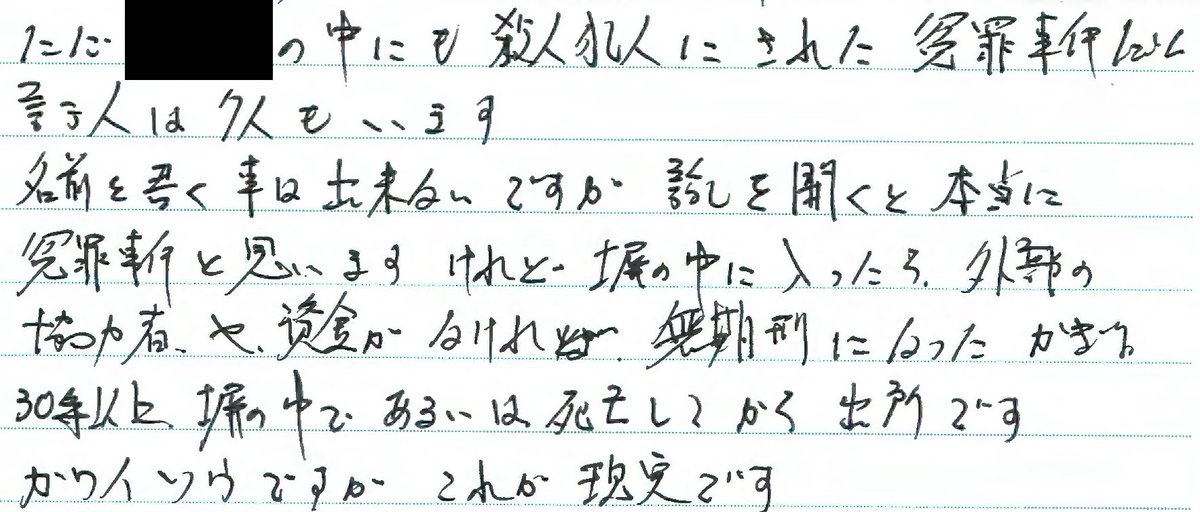 ただ の中にも 殺人犯人に された 冤罪事件だと
言う人は 7人も います
名前を書く事は出来ないですが 話しを聞くと本当に
冤罪事件と思います けれど 塀の中に入ったら、外部の
協力者、や、資金が なければ 無期刑になった かぎり
30年以上、塀の中で あるいは 死亡してから 出所です
カワイソウですが これが 現実です